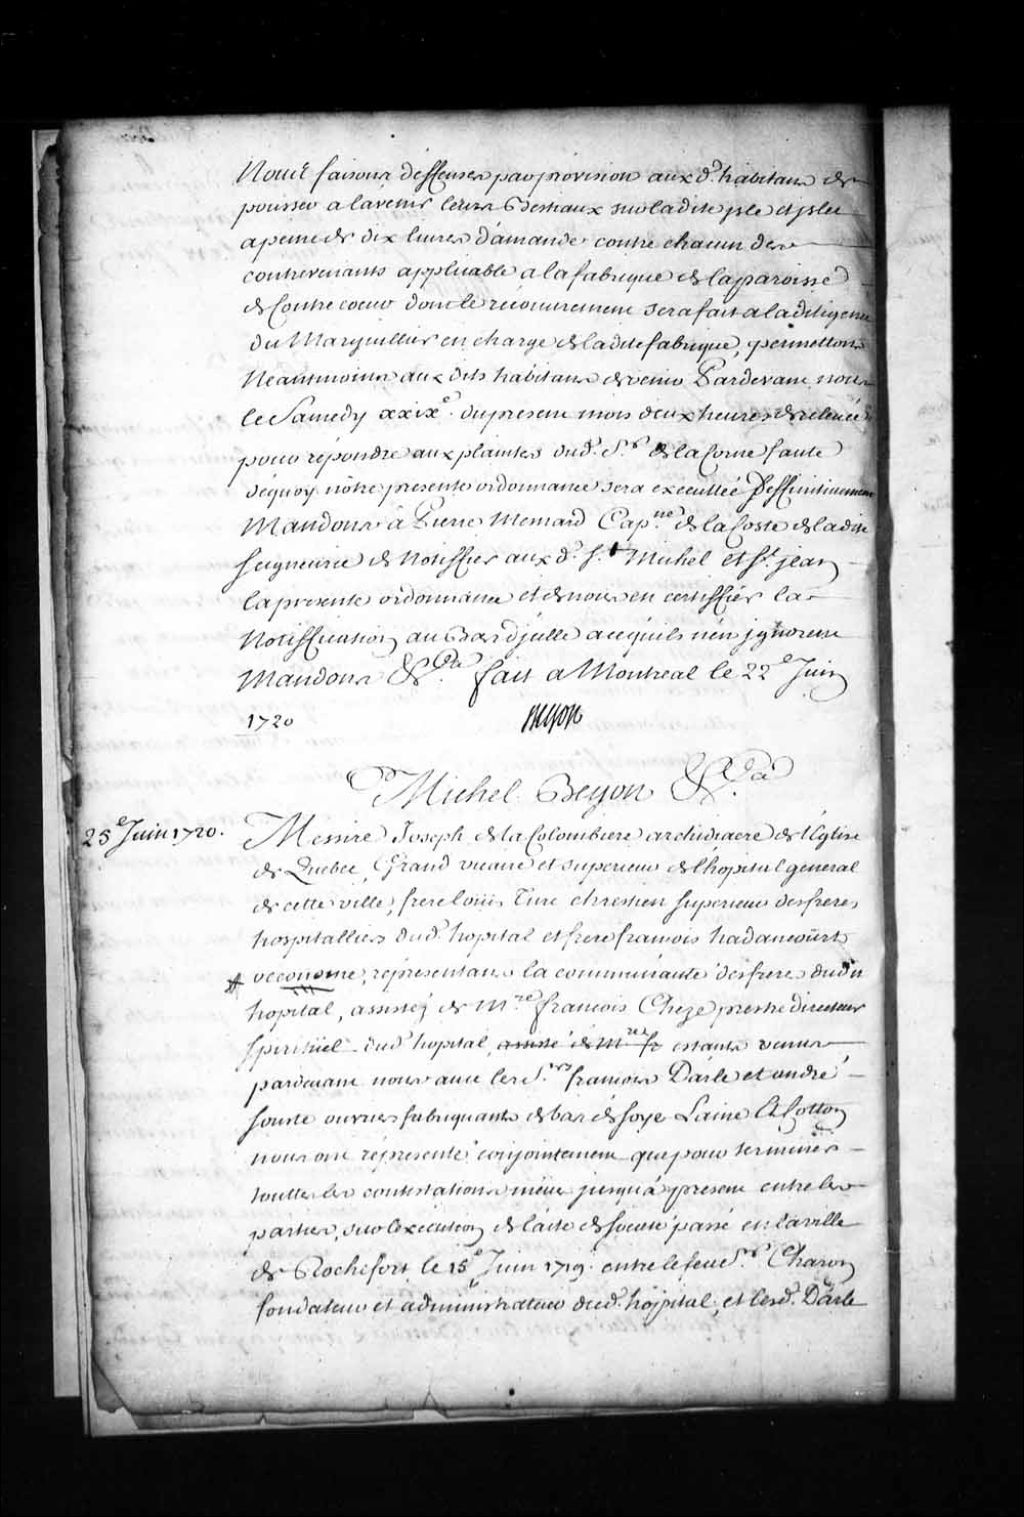 Nous faisons deffenses par provision aux d. habitans de
pousser a lavenir leurs Bestiaux sur ladite jsle et jslet
apeine de dix livres d'amande contre chacun des
contrevenants applicable a la fabrique de la paroisse
de Contrecoeur dont le recouvrement sera fait a la diligence
du Marguillier en charge de ladite fabrique, permettons
Neantmoins aux dits habitans de venir Pardevant nous
le Samedy xxix.e du present mois deux heures de relevée
pour répondre aux plaintes dud. S.r de la Corne faute
dequoy nôtre presente ordonnance sera executtée deffinitivement
Mandons à Pierre Memard Cap.ne de la Coste de ladite
Seigneurie de Notiffier aux d. S.t Michel et S.t jean
la presente ordonnance et de nous en certiffier la
Notiffication au Bas d'jcelle acequ'ils n'en jgnorent
Mandons &.Ca fait a Montreal le 22e Juin
1720
Begon
Michel Begon &.Ca
25e Juin 1720.
Messire Joseph de la Colombiere archidiacre de l'Eglise
de Quebec, Grand vicaire et superieur de l'hopital general
de cette ville, frere loüis Turc chrestien superieur des freres
hospitalliers dud. hopital et frere francois hadancourt
oeconome, representans la communauté des freres dudit
hopital, assistéz de M.re francois Cheze prestre directeur
spirituel dud. hopital, assisté de M.re fr estants venus
pardevant nous avec les S.rs francois Darles et andré
Souste ouvriers fabriquants de bas de soye Laine Et Cotton
nous ont représenté conjointement que pour terminer
touttes les contestations mües jusqu'á present entre les
parties, sur l'execution de l'acte de societé passé en la ville
de Rochefort le 15e Juin 1719. entre le feu S.r Charon
fondateur et administrateur dud. hôpital, et lesd. Darles